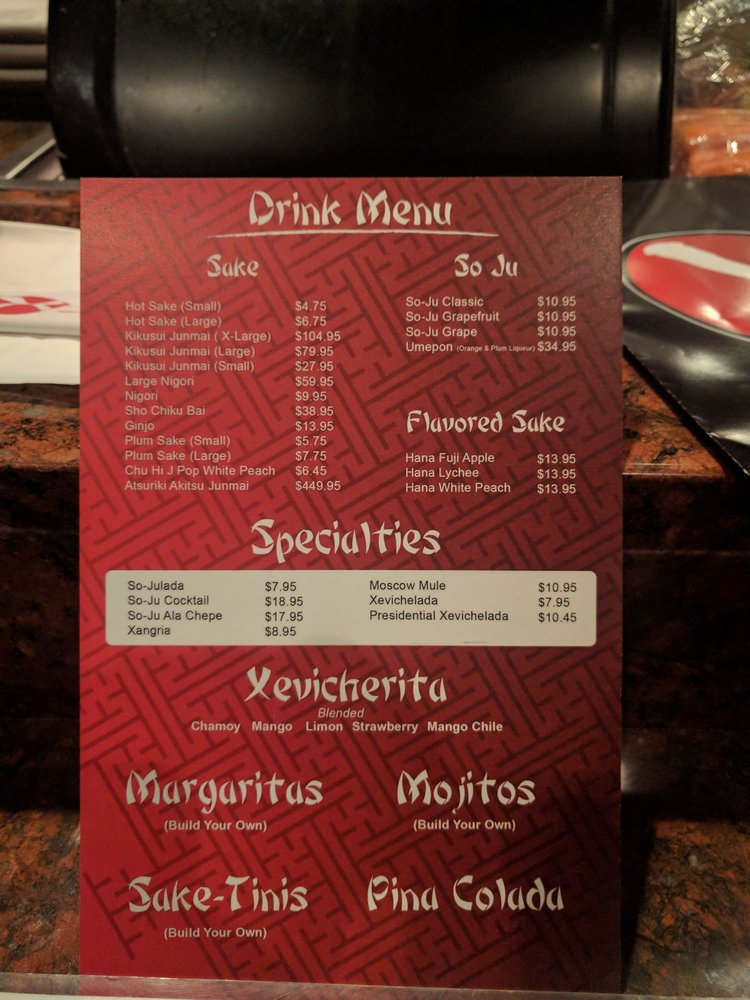 Drink Menu
Sake
Hot Sake (Small) $4.75
Hot Sake (Large) $6.75
Kikusui Junmai ( X-Large) $104.95
Kikusui Junmai (Large) $79.95
Kikusui Junmai (Small) $27.95
Large Nigori $59.95
Nigori $9.95
Sho Chiku Bai $38.95
Ginjo $13.95
Plum Sake (Small) $5.75
Plum Sake (Large) $7.75
Chu Hi J Pop White Peach $6.45
Atsuriki Akitsu Junmai $449.95
So Ju
So-Ju Classic $10.95
So-Ju Grapefruit $10.95
So-Ju Grape $10.95
Umepon (Orange & Plum Liqueur) $34.95
Flavored Sake
Hana Fuji Apple $13.95
Hana Lychee $13.95
Hana White Peach $13.95
Specialties
So-Julada $7.95
So-Ju Cocktail $18.95
So-Ju Ala Chepe $17.95
Xangria $8.95
Moscow Mule $10.95
Xevichelada $7.95
Presidential Xevichelada $10.45
Xevicherita
Blended
Chamoy Mango Limon Strawberry Mango Chile
Margaritas
(Build Your Own)
Mojitos
(Build Your Own)
Sake-Tinis
(Build Your Own)
Pina Colada